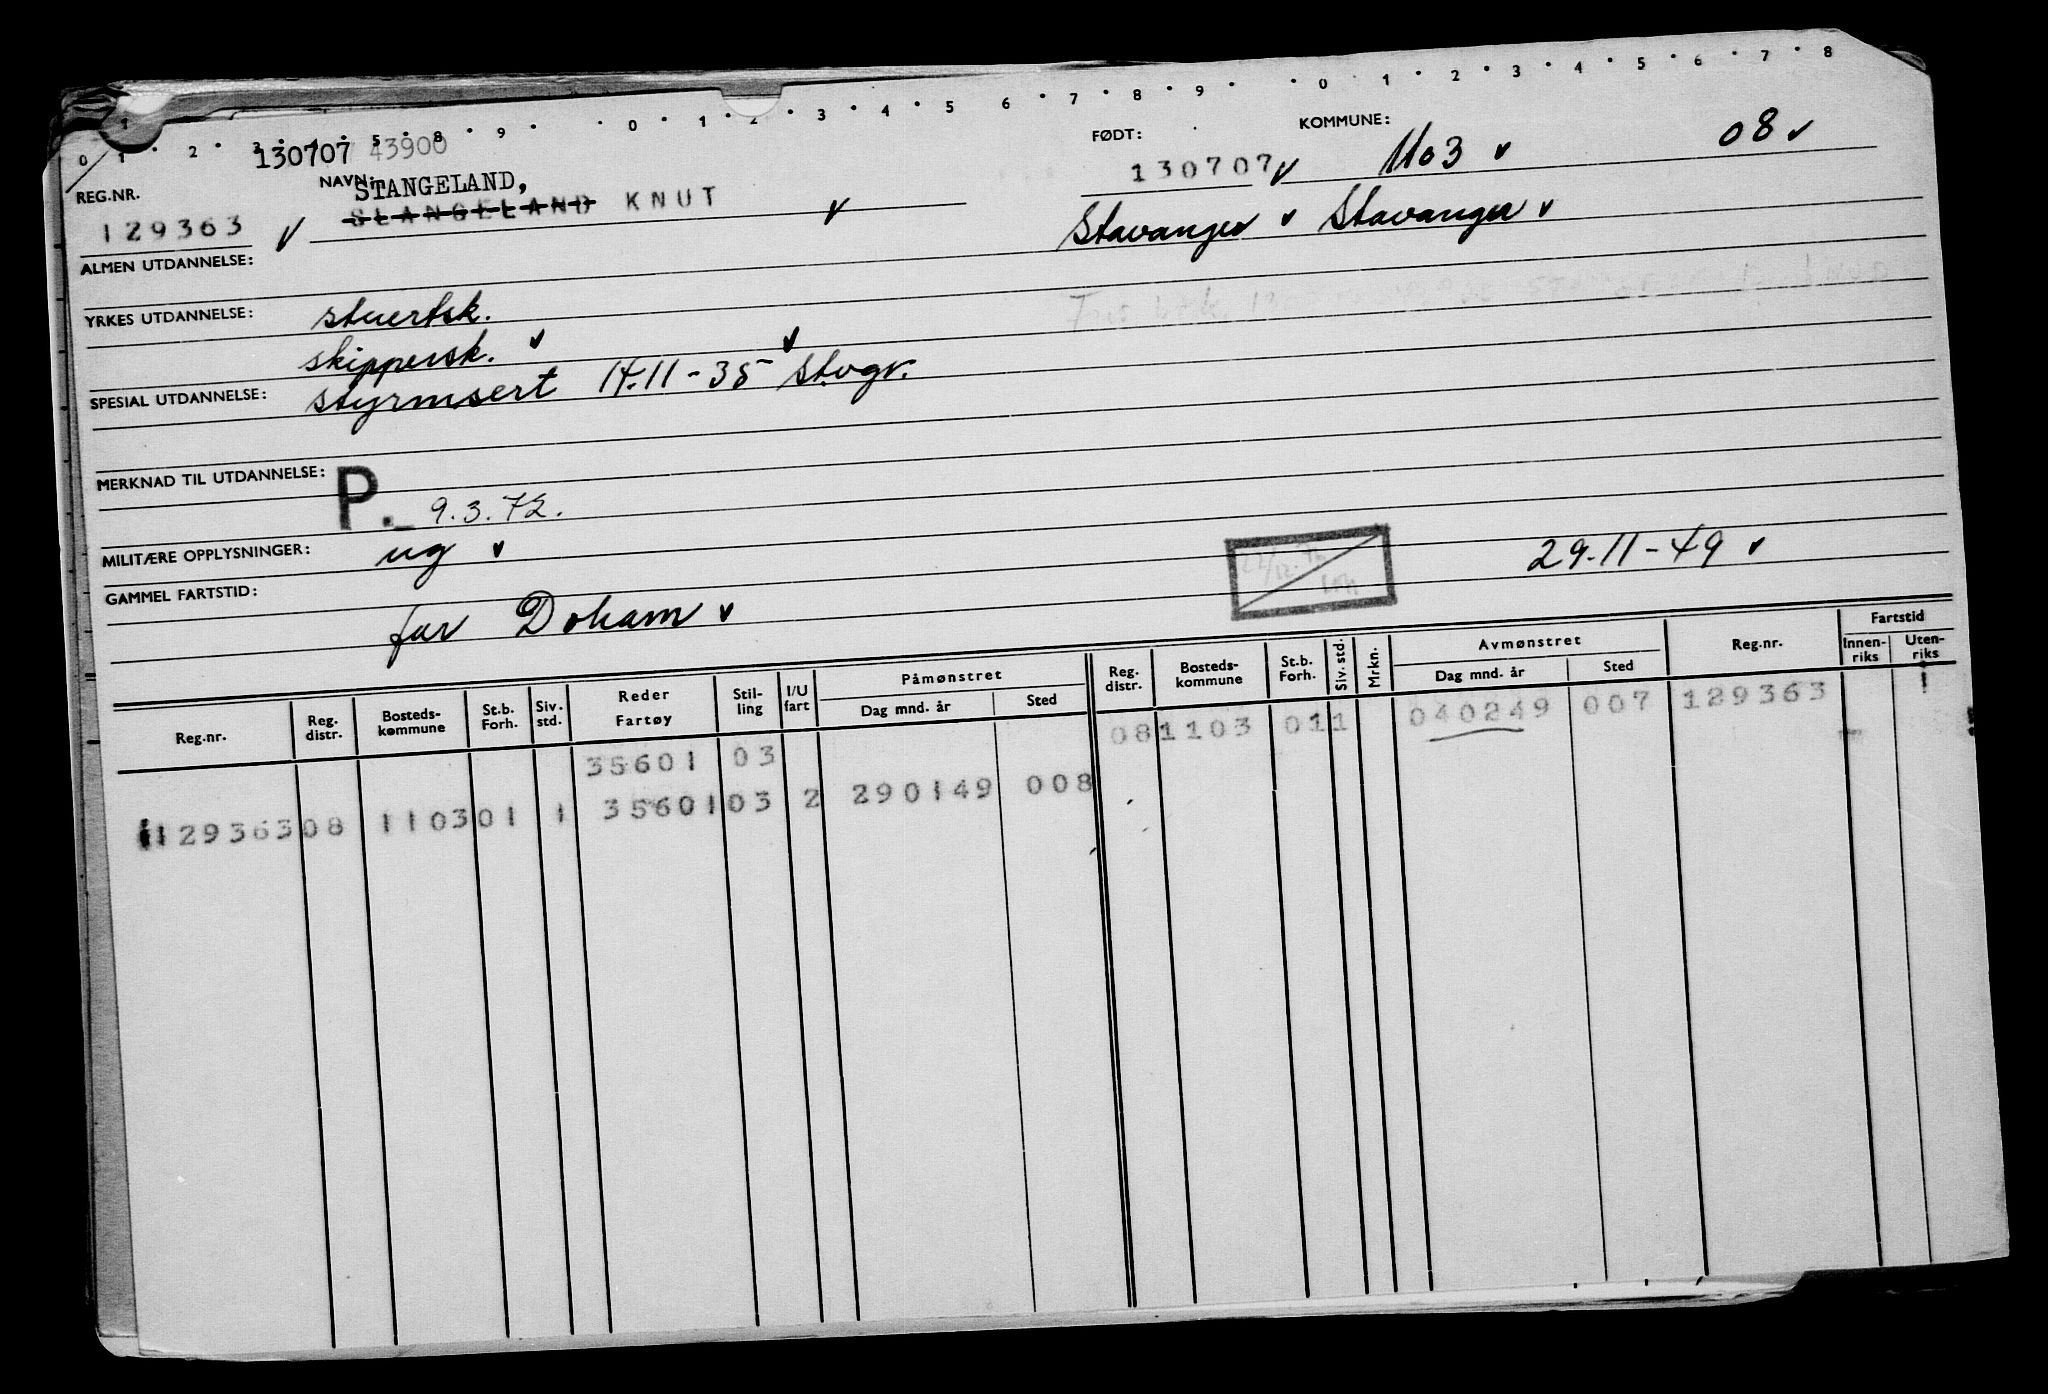 0 1 2 3 5 8 9 0 1 2 3 4 5 6 7 8 9 0 1 2 3 4 5 6 7 8
130707 43900
REG.NR. NAVN: STANGELAND, FØDT: KOMMUNE:
129363 SLANGELAND KNUT 130707 1103 08
ALMEN UTDANNELSE: Stavanger Stavanger
YRKES UTDANNELSE: stuertsk.
skippersk.
SPESIAL UTDANNELSE: styrmsert 14.11-35 Stvgr.
MERKNAD TIL UTDANNELSE: P. 9.3.72.
MILITÆRE OPPLYSNINGER: ug 29-11-49
GAMMEL FARTSTID:
far Doham
Reg.nr. Reg. distr. Bosteds-kommune St.b. Forh. Siv. std. Reder Fartøy Stil-ling I/U fart Påmønstret Dag mnd. år Sted Reg. distr. Bosteds-kommune St.b. Forh. Siv. std. Mrkn. Avmønstret Dag mnd. år Sted Reg.nr. Fartstid Innen-riks Uten-riks
35601 03 08 1103 01 1 040249 007 129363 1
129363 08 1103 01 1 35601 03 2 290149 008